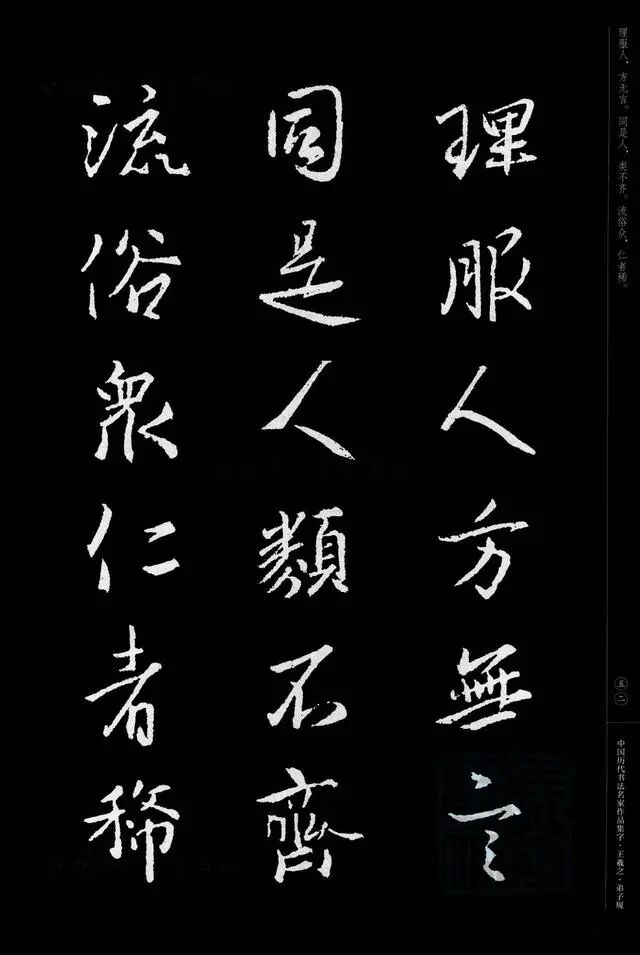 理服人方無言
同是人類不齊
流俗衆仁者稀
理服人，方无言。同是人，类不齐。流俗众，仁者稀。
五二
中国历代书法名家作品集字·王羲之·弟子规